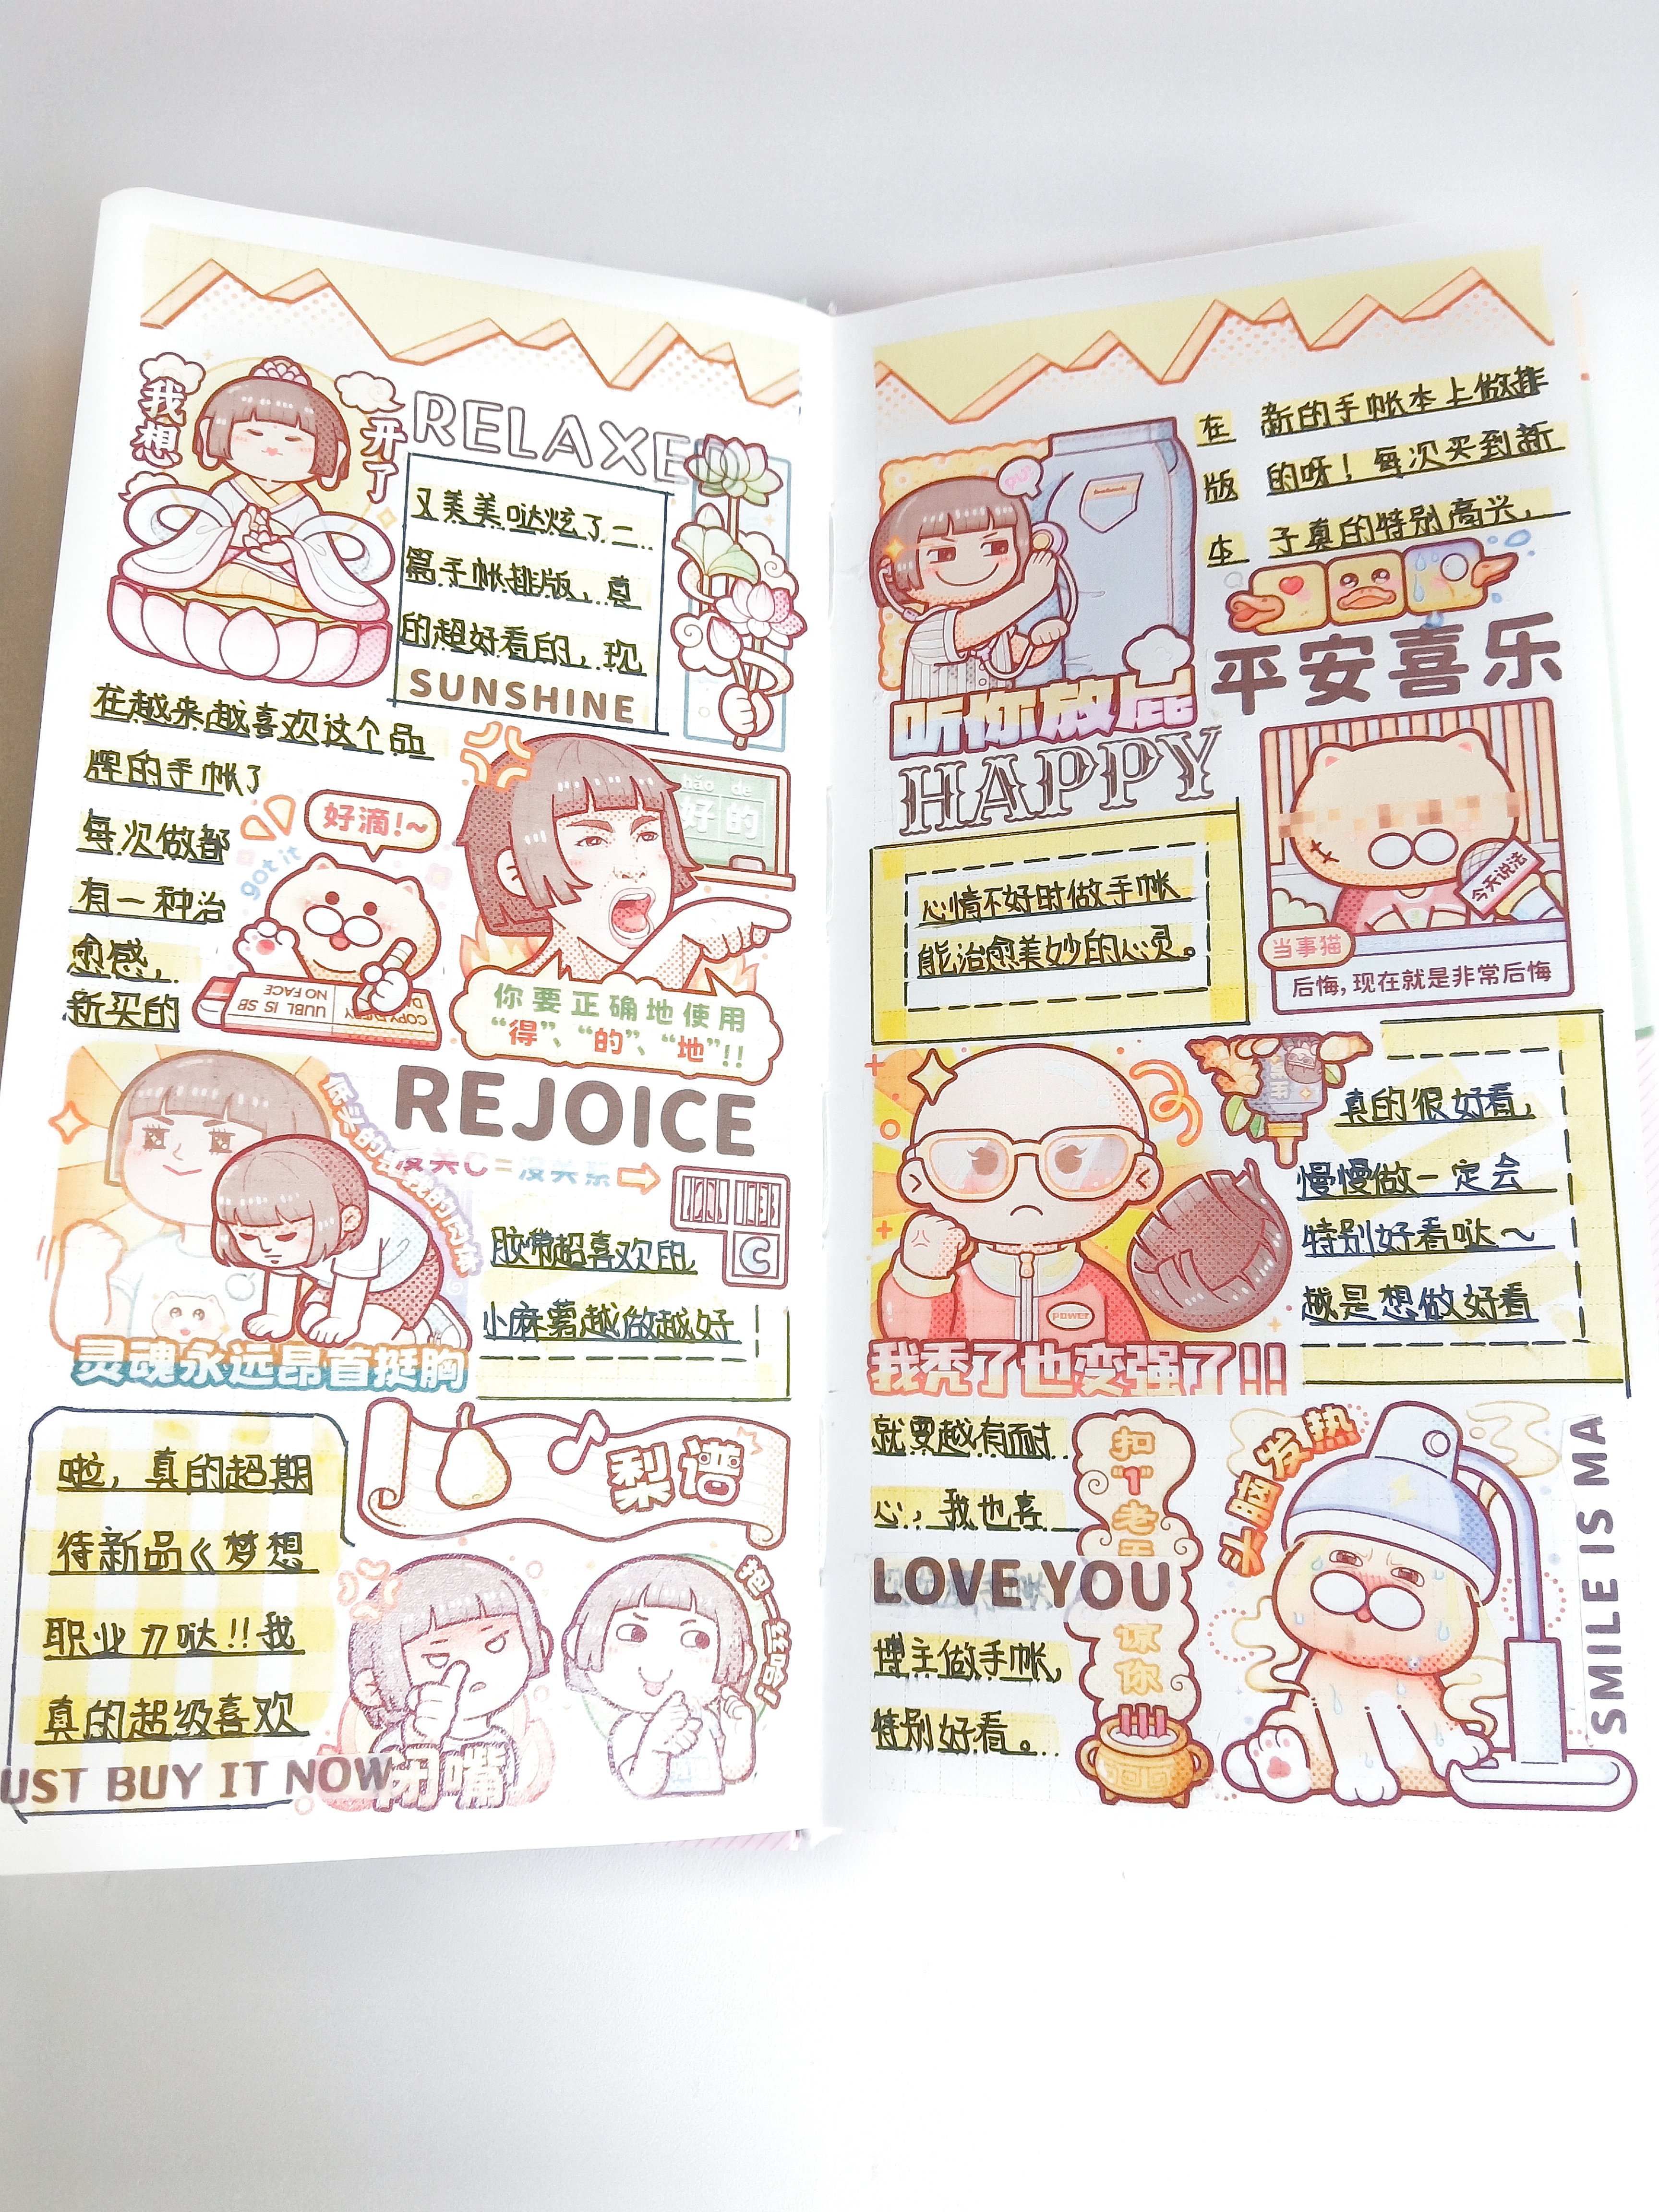 我想
开了
RELAXE
又美美哒炫了二
篇手帐排版，真
的超好看的，现
SUNSHINE
在越来越喜欢这个品
牌的手帐了
每次做都
有一种治
愈感，
新买的
好滴!~
got it
NO FACE
UUBL IS SB
hǎo de
好的
你要正确地使用
“得”、“的”、“地”!!
REJOICE
没关C=没关系
C
灵魂永远昂首挺胸
胶带超喜欢的，
小麻薯越做越好
啦，真的超期
待新品《梦想
职业力哒!!我
真的超级喜欢
UST BUY IT NOW
梨谱
闭嘴
抱一丝哈~
在 新的手帐本上做排
版 的呀！每次买到新
本 子真的特别高兴，
听你放屁
平安喜乐
HAPPY
心情不好时做手帐
能治愈美妙的心灵。
今天说法
当事猫
后悔，现在就是非常后悔
真的很好看，
慢慢做一定会
特别好看哒～
越是想做好看
power
我秃了也变强了!!
就要越有耐
心，我也喜
LOVE YOU
博主做手帐，
特别好看。
扣“1”老
谅你
头脑发热
SMILE IS MA